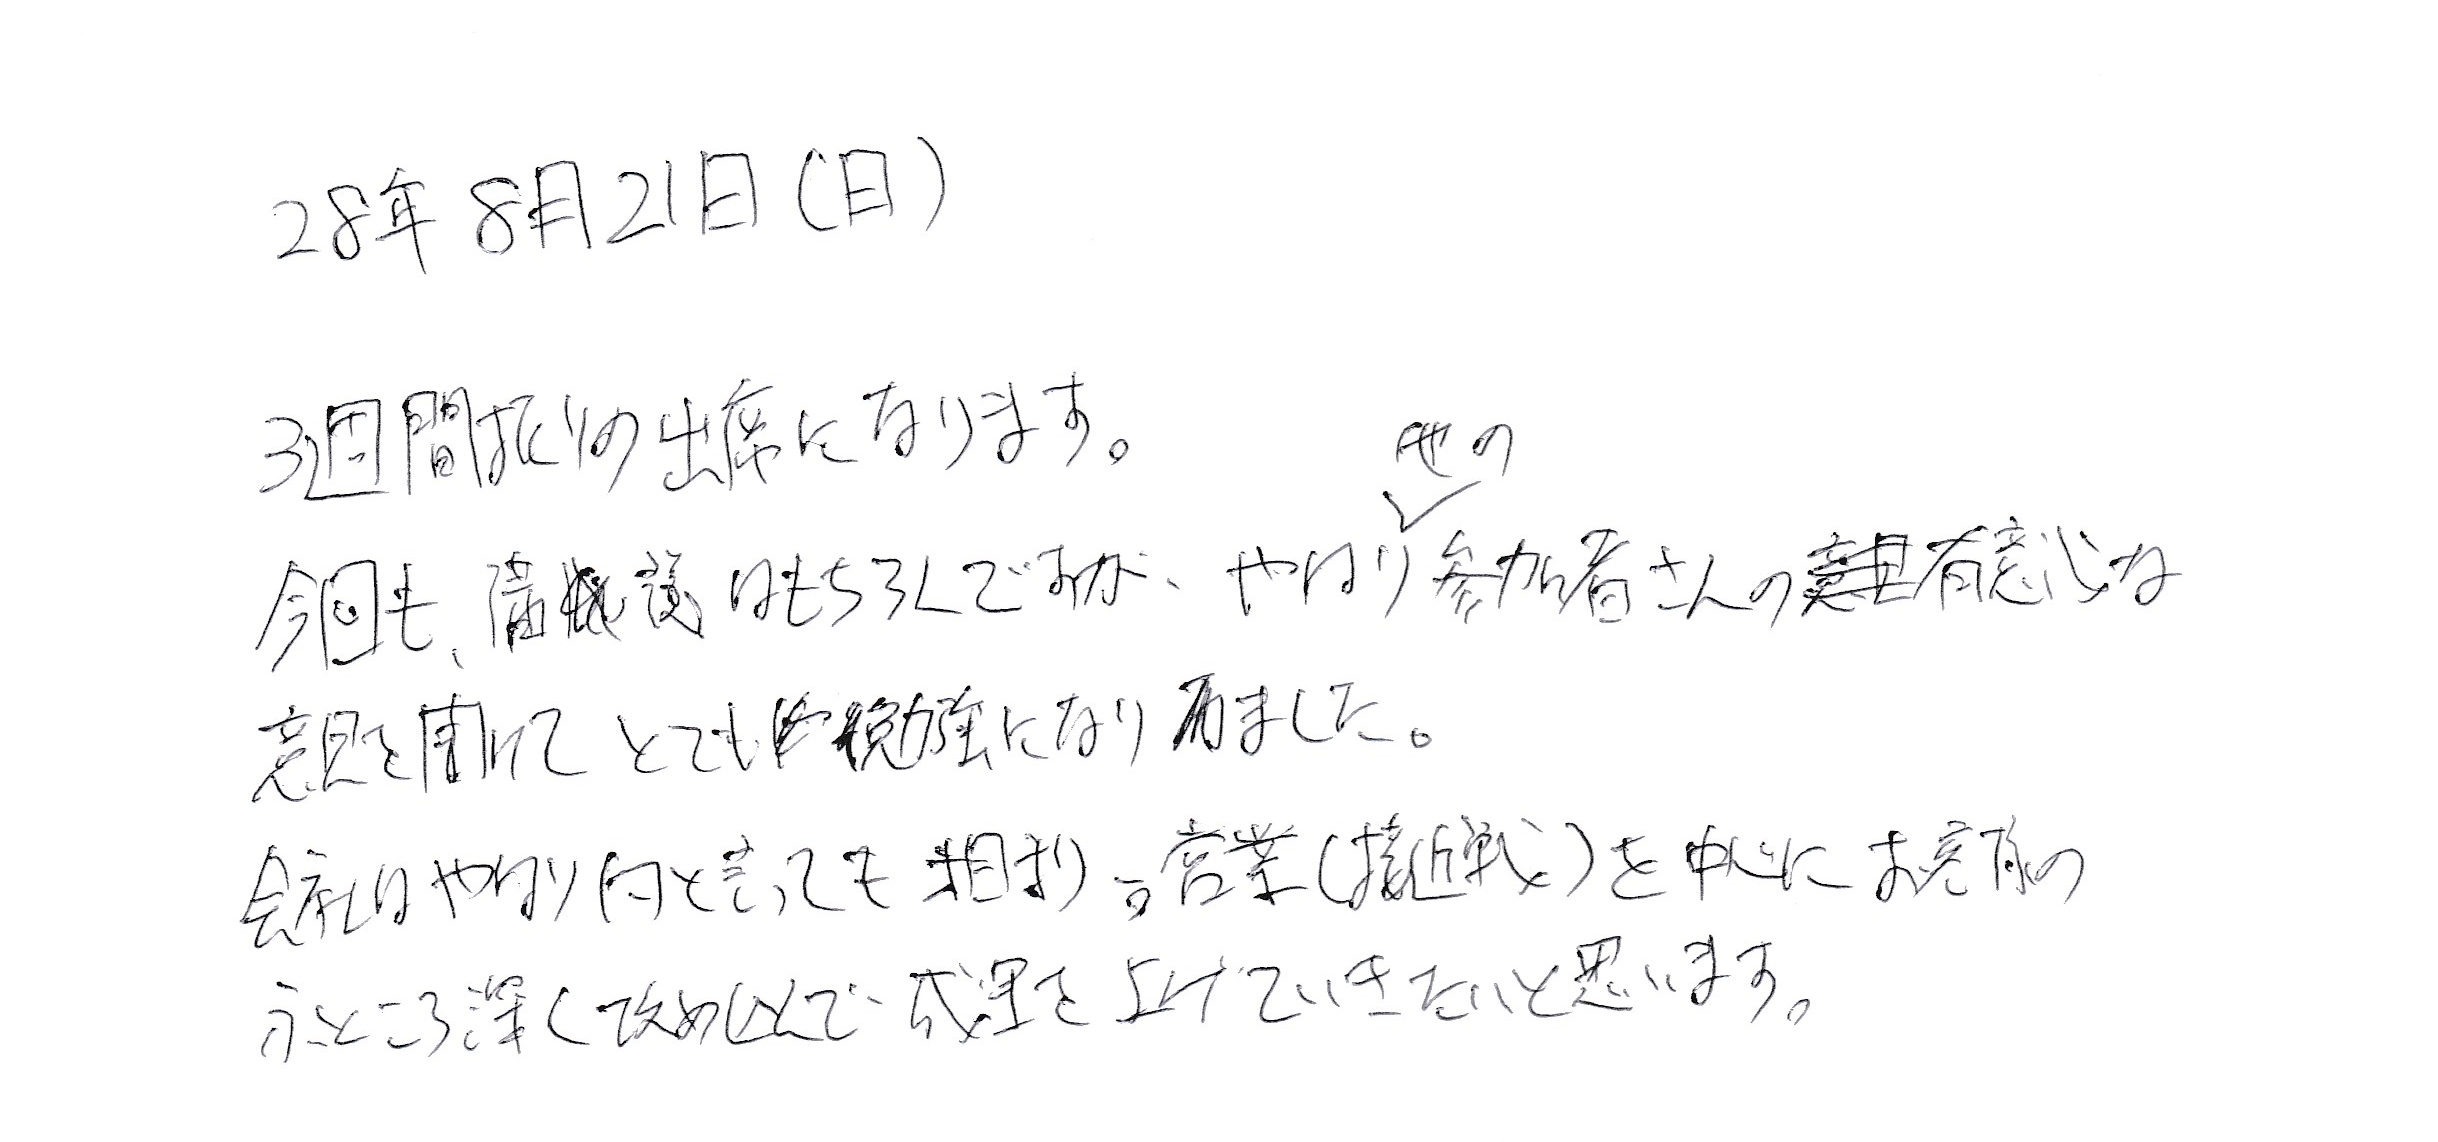 28年8月21日(日)
3週間振りの出席になります。
他の
今回も、講義はもちろんですが、やはり参加者さんの有意義な
意見を聞けてとても勉強になりました。
会社はやはり何と言っても粗利。営業(接近戦)を中心にお客様の
ふところ深く攻め込んで成果を上げていきたいと思います。